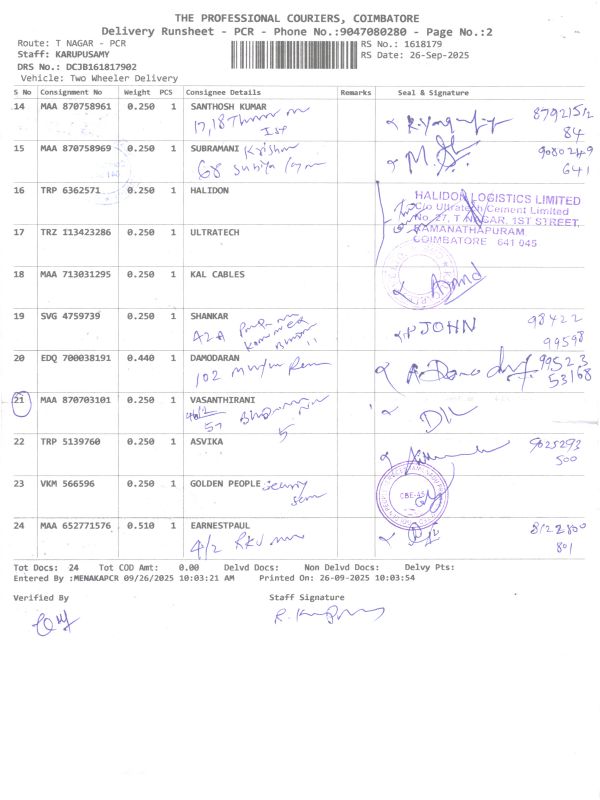 THE PROFESSIONAL COURIERS, COIMBATORE
Delivery Runsheet - PCR - Phone No.:9047080280 - Page No.:2
Route: T NAGAR - PCR
RS No.: 1618179
Staff: KARUPUSAMY
RS Date: 26-Sep-2025
DRS No.: DCJB161817902
Vehicle: Two Wheeler Delivery
S No Consignment No Weight PCS Consignee Details Remarks Seal & Signature
14 MAA 870758961 0.250 1 SANTHOSH KUMAR
17,18
84
15 MAA 870758969 0.250 1 SUBRAMANI Krishna
68
641
16 TRP 6362571 0.250 1 HALIDON
HALIDON LOGISTICS LIMITED
C/o Ultratech Cement Limited
No. 27, T NAGAR, 1ST STREET,
RAMANATHAPURAM
COIMBATORE 641 045
17 TRZ 113423286 0.250 1 ULTRATECH
18 MAA 713031295 0.250 1 KAL CABLES
Anand
19 SVG 4759739 0.250 1 SHANKAR
JOHN 98422
99598
20 EDQ 700038191 0.440 1 DAMODARAN
102
99523
53168
21 MAA 870703101 0.250 1 VASANTHIRANI
57
5
22 TRP 5139760 0.250 1 ASVIKA
9025293
500
23 VKM 566596 0.250 1 GOLDEN PEOPLE
CBE-45
24 MAA 652771576 0.510 1 EARNESTPAUL
4/2 RKV
8122800
801
Tot Docs: 24 Tot COD Amt: 0.00 Delvd Docs: Non Delvd Docs: Delvy Pts:
Entered By :MENAKAPCR 09/26/2025 10:03:21 AM Printed On: 26-09-2025 10:03:54
Verified By Staff Signature